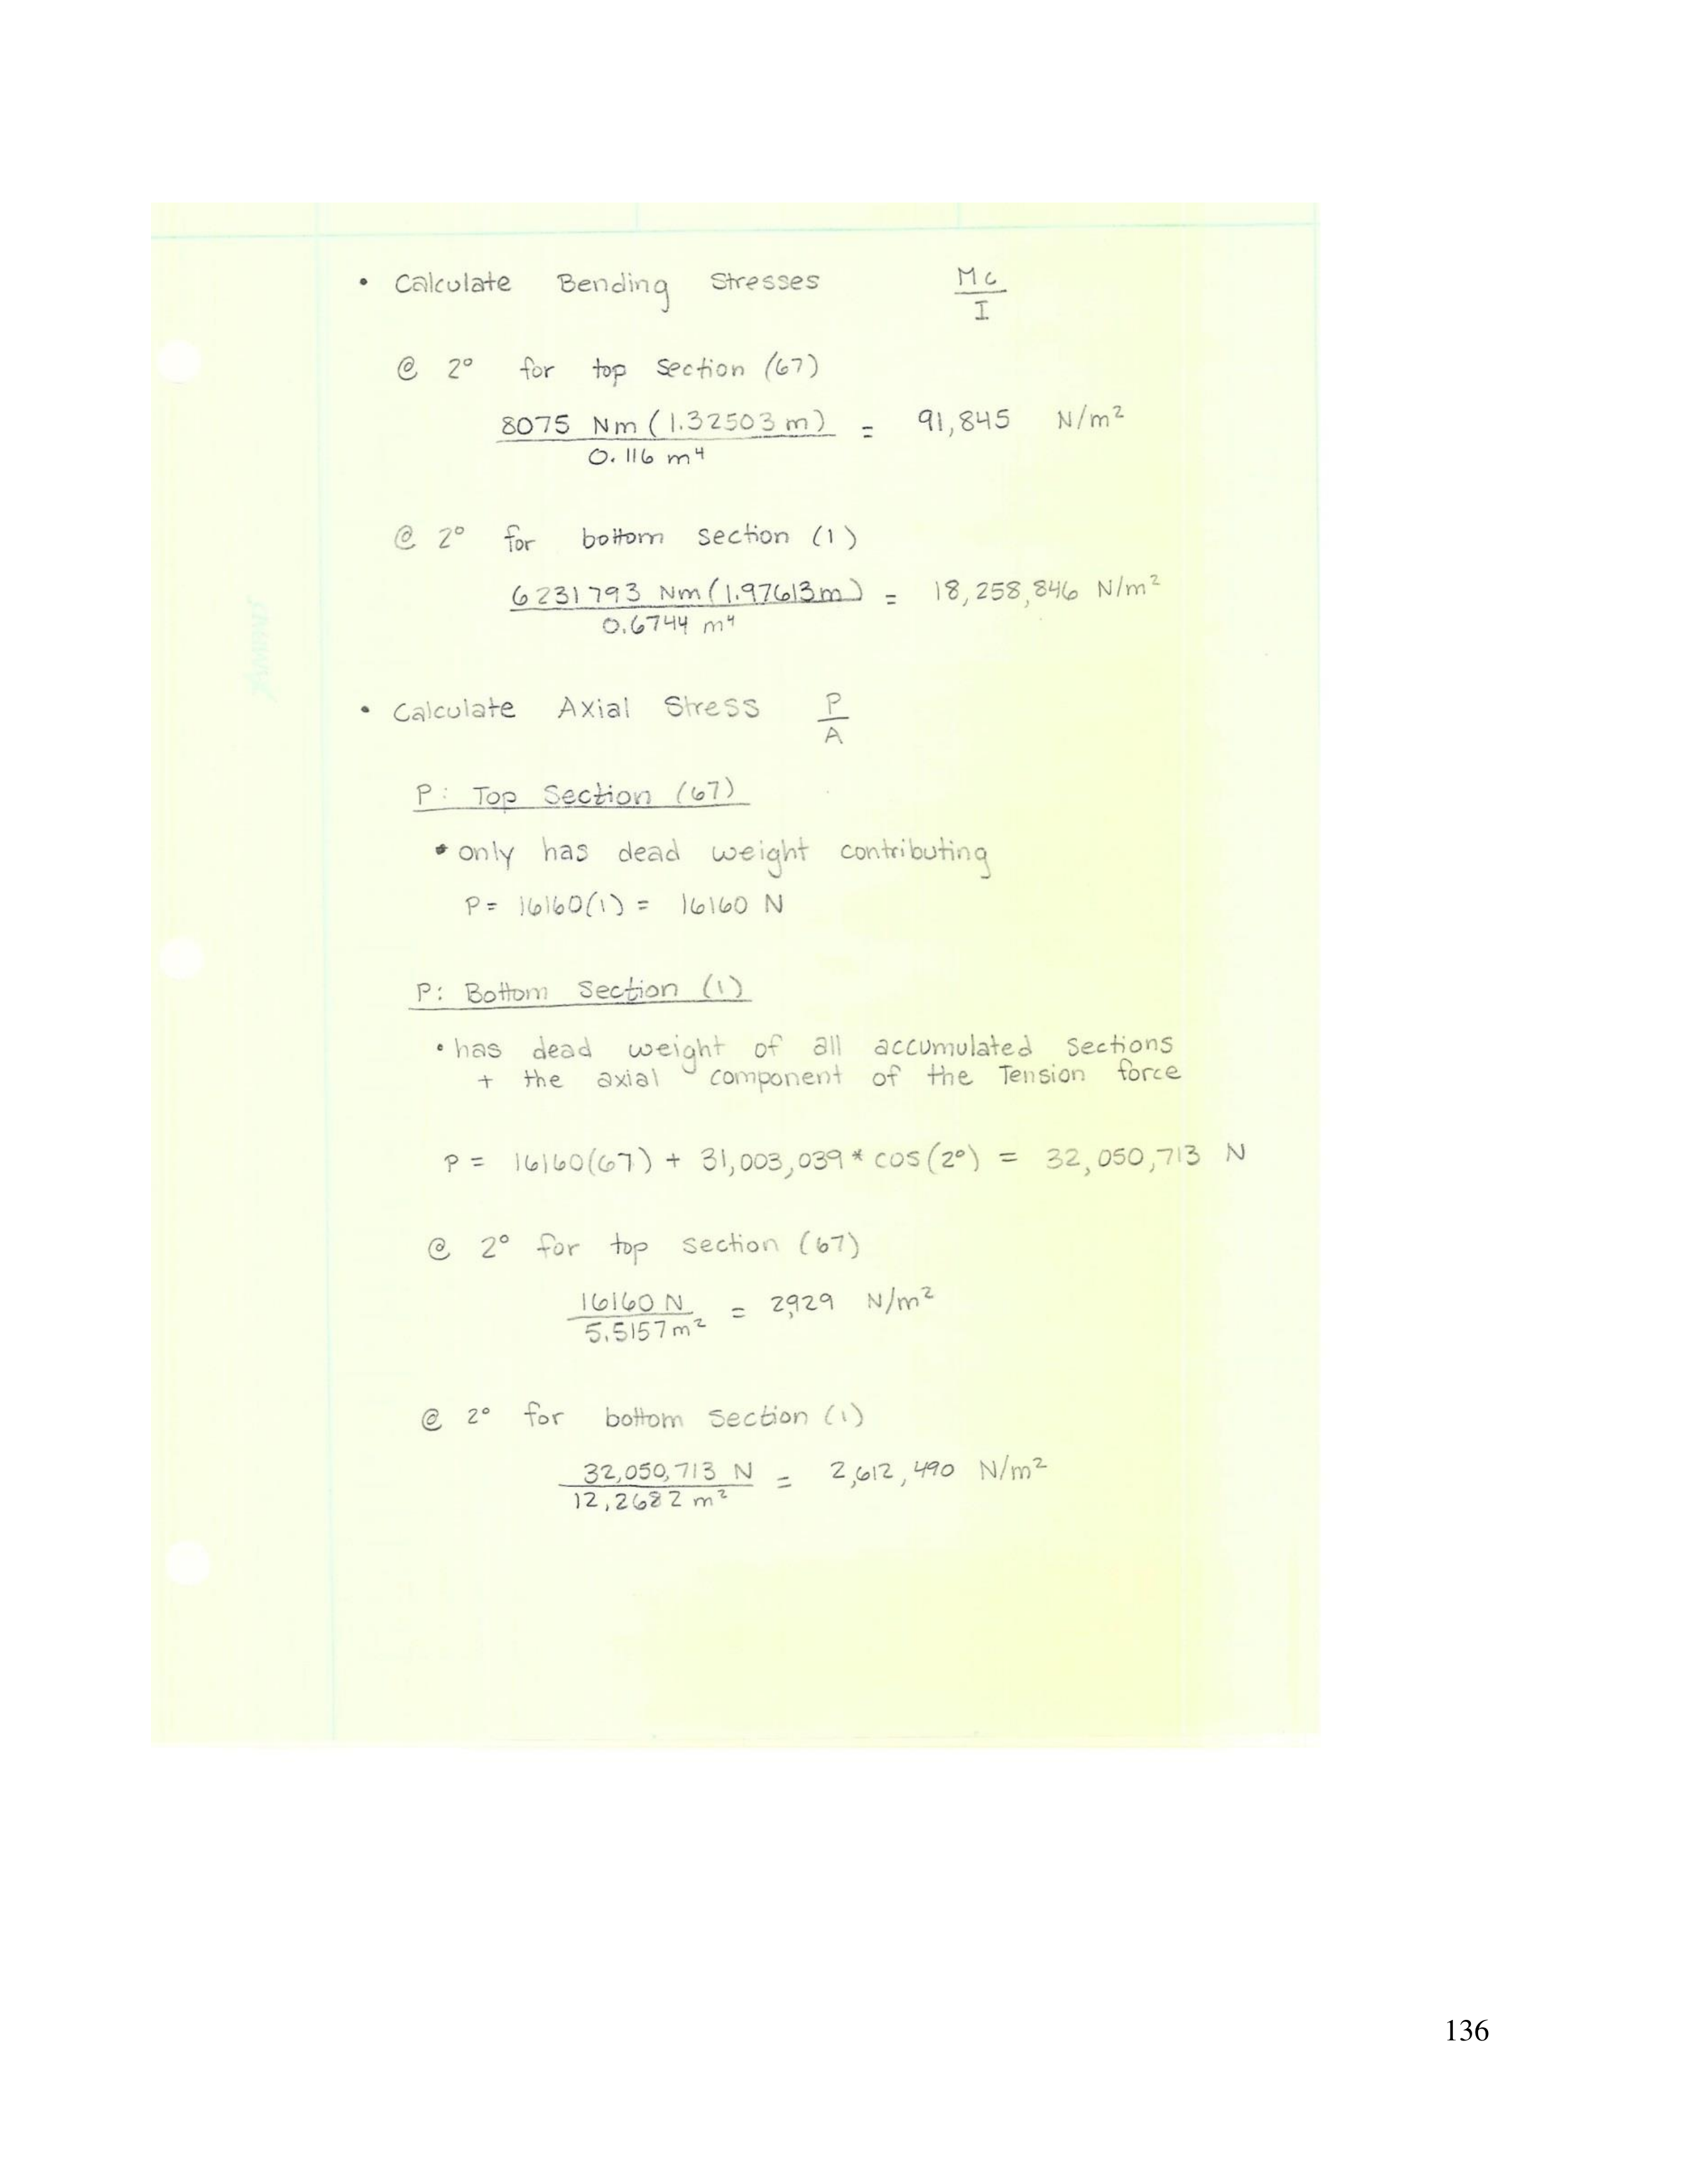 • Calculate Bending Stresses Mc
I
@ 2° for top section (67)
8075 Nm (1.32503 m) = 91,845 N/m²
0.116 m⁴
@ 2° for bottom section (1)
6231793 Nm (1.97613m) = 18,258,846 N/m²
0.6744 m⁴
• Calculate Axial Stress P
A
P: Top Section (67)
• only has dead weight contributing
P = 16160(1) = 16160 N
P: Bottom Section (1)
• has dead weight of all accumulated sections
+ the axial component of the Tension force
P = 16160(67) + 31,003,039 * cos(2°) = 32,050,713 N
@ 2° for top section (67)
16160 N = 2,929 N/m²
5.5157m²
@ 2° for bottom section (1)
32,050,713 N = 2,612,490 N/m²
12.2682 m²
136